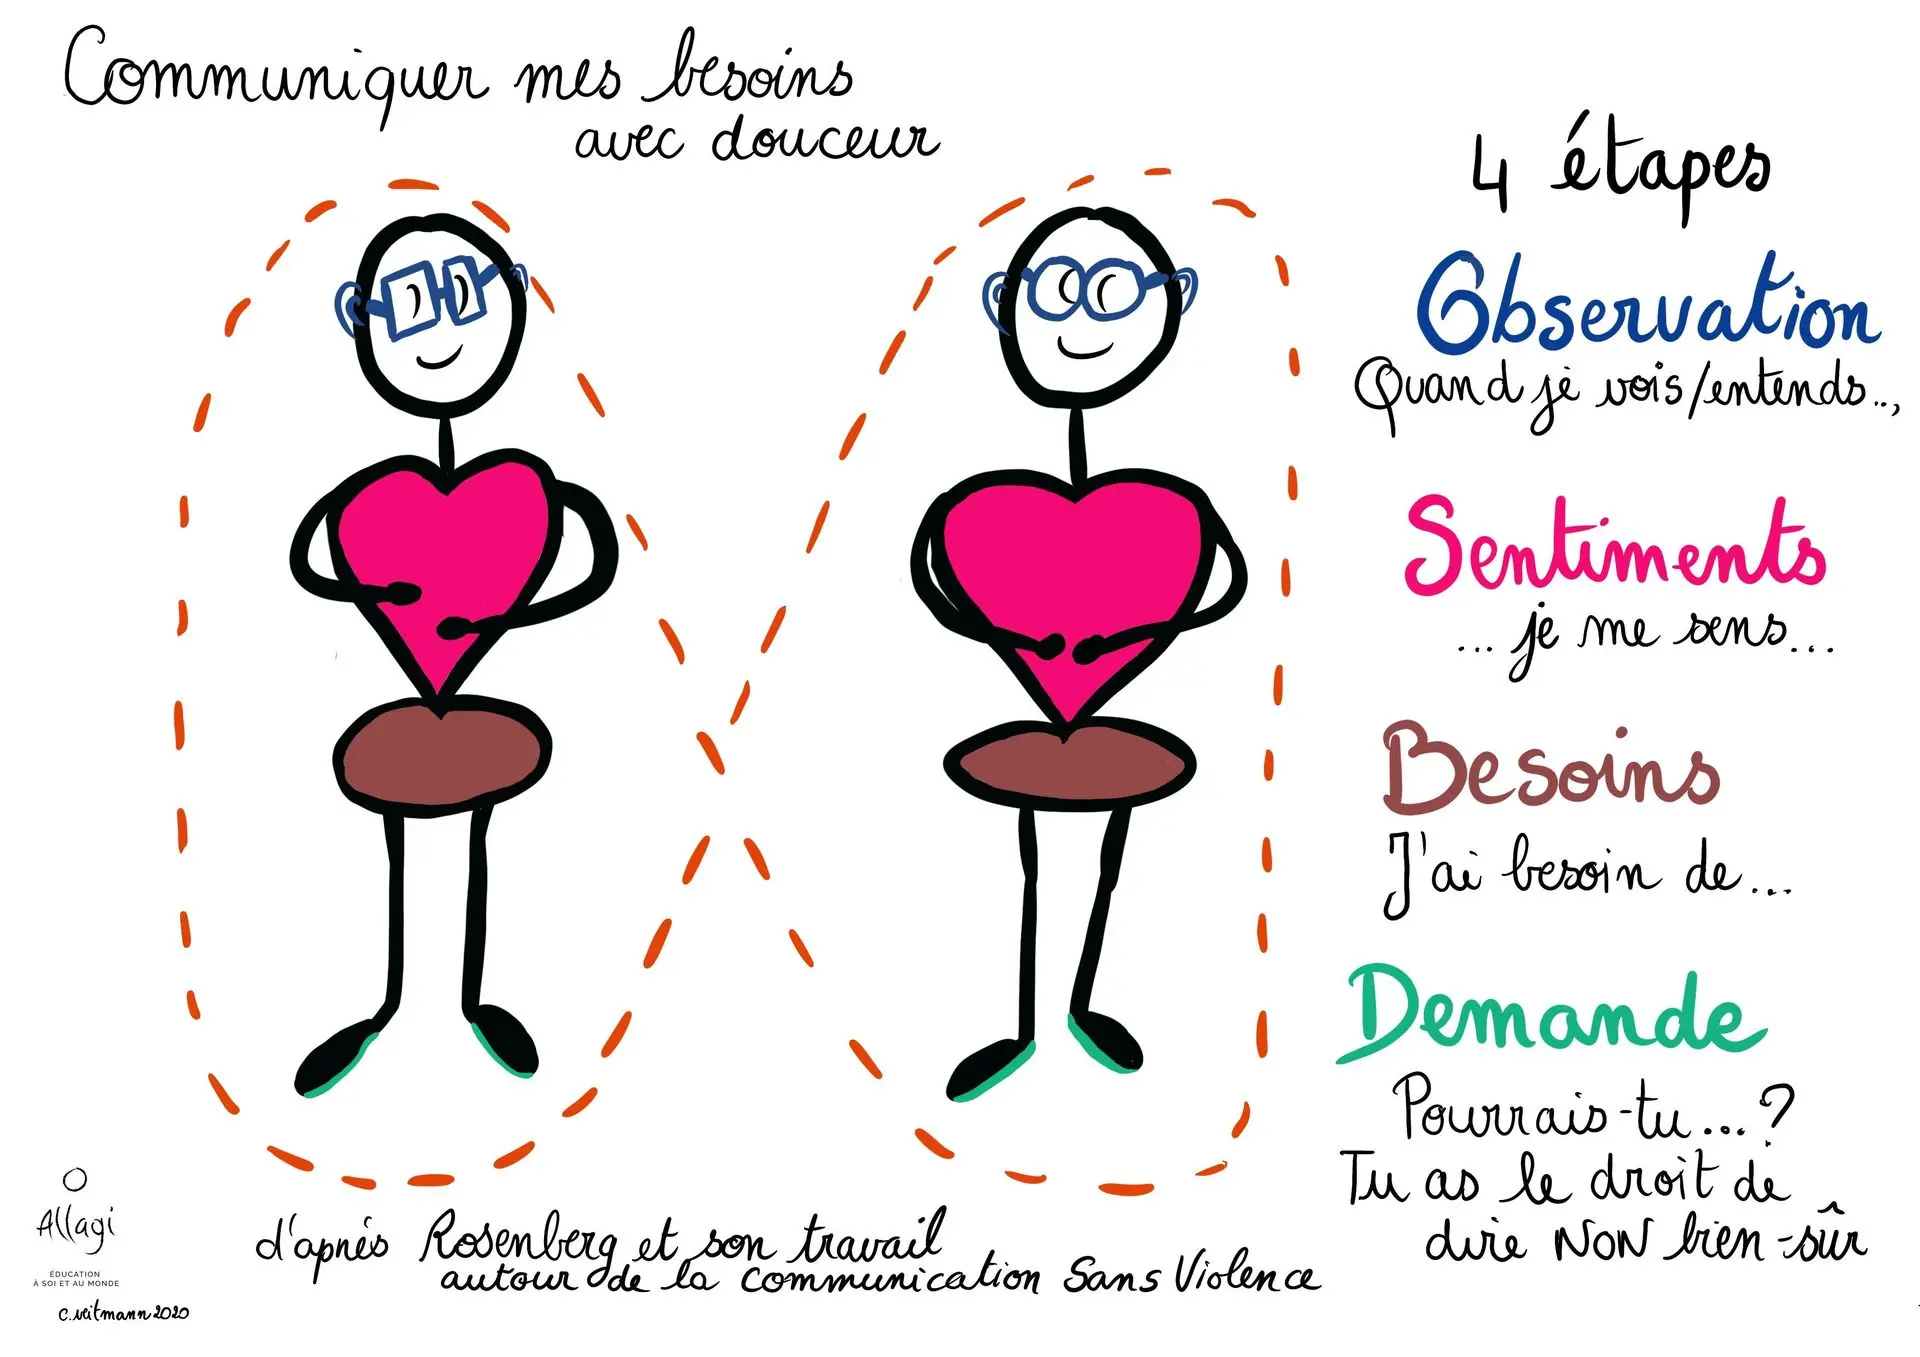 Communiquer mes besoins
avec douceur
4 étapes
Observation
Quand je vois/entends..,
Sentiments
... je me sens...
Besoins
J'ai besoin de...
Demande
Pourrais-tu...?
Tu as le droit de
dire NON bien-sûr
d'après Rosenberg et son travail
autour de la communication Sans Violence
Allagi
ÉDUCATION
À SOI ET AU MONDE
c.veitmann 2020